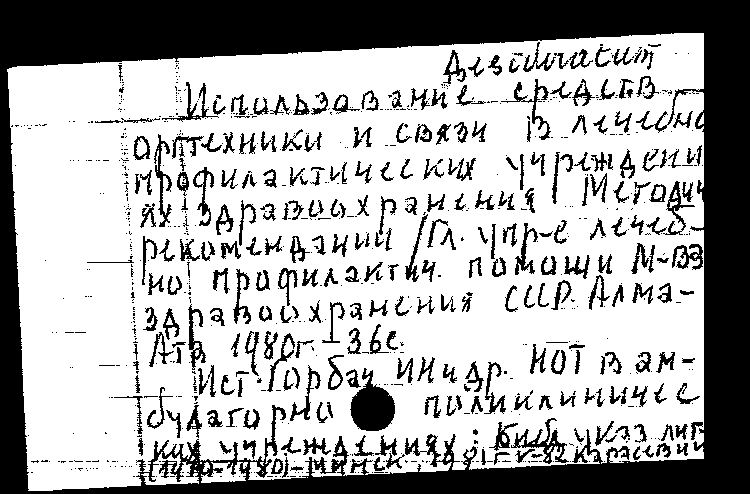 Desideratum
Использование средств
оргтехники и связи в лечебно
профилактических учреждени
ях здравоохранения. Методич
рекомендации /Гл. упр-е лечеб-
но профилактич. помощи М-ва
здравоохранения СССР. Алма-
Ата 1980г.-36с.
Ист: Горбач ИН и др. НОТ в ам-
булаторно поликлиничес
ких учреждениях: Библ указ лит
(1970-1980)-Минск, 1981г